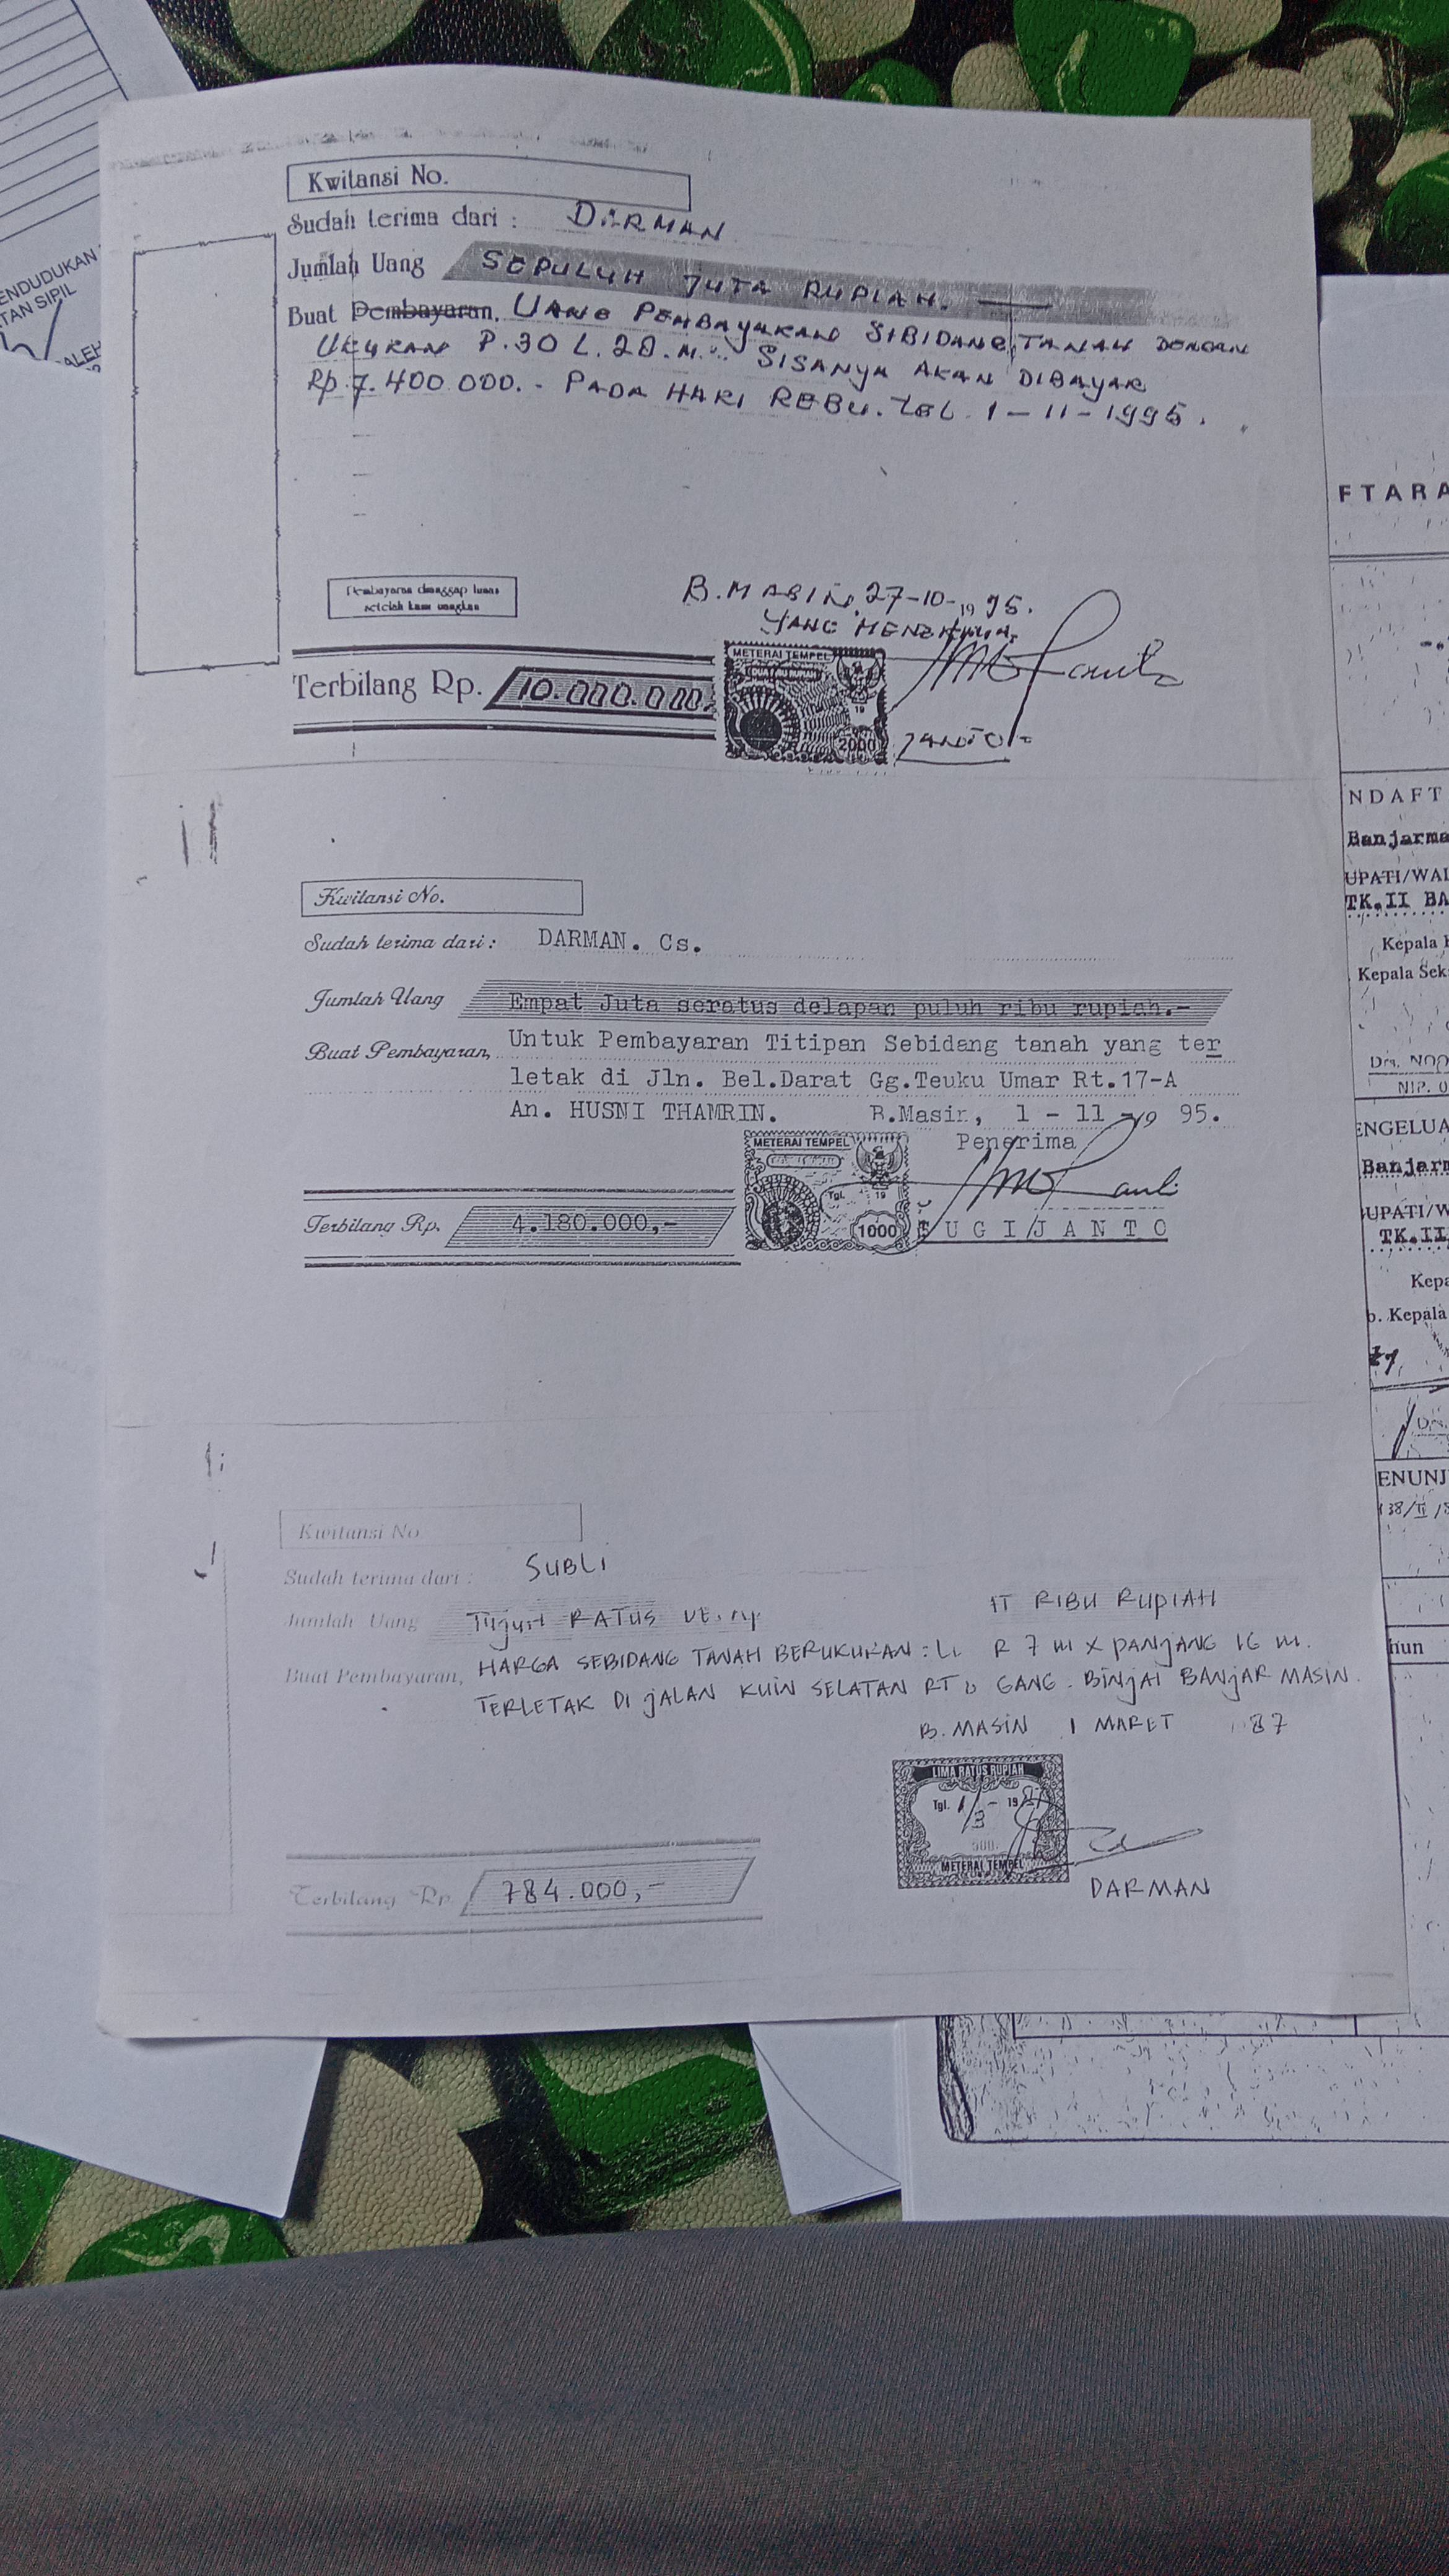 ENDUDUKAN
TAN SIPIL
ALEH
Kwitansi No.
Sudah terima dari : DARMAN
Jumlah Uang SEPULUH JUTA RUPIAH.
Buat Pembayaran, UANG PEMBAYARAN SIBIDANG TANAH DENGAN
UKURAN P.30 L.20.M. SISANYA AKAN DIBAYAR
Rp.7.400.000.- PADA HARI REBU. TGL 1-11-1995.
Pembayaran dianggap lunas
setelah kami uangkan
B.MASIN, 27-10-1995.
YANG MENERIMA,
METERAI TEMPEL
19
2000
Terbilang Rp. 10.000.000,
Kwitansi No.
Sudah terima dari : DARMAN. Cs.
Jumlah Uang Empat Juta seratus delapan puluh ribu rupiah.-
Buat Pembayaran, Untuk Pembayaran Titipan Sebidang tanah yang ter
letak di Jln. Bel.Darat Gg.Teuku Umar Rt.17-A
An. HUSNI THAMRIN. B.Masin, 1 - 11 - 19 95.
Penerima
METERAI TEMPEL
Tgl. 19
1000
Terbilang Rp. 4.180.000,-
SUGIJANTO
Kwitansi No.
Sudah terima dari : SUBLI
Jumlah Uang TUJUH RATUS RIBU RUPIAH
Buat Pembayaran, HARGA SEBIDANG TANAH BERUKURAN : R 7 m X PANJANG 16 m.
TERLETAK DI JALAN KUIN SELATAN RT GANG. BINJAI BANJAR MASIN.
B. MASIN 1 MARET 87
LIMA RATUS RUPIAH
Tgl. 1/3 - 1987
500
METERAI TEMPEL
Terbilang Rp 784.000,-
DARMAN
FTARA
NDAFT
Banjarma
UPATI/WAL
TK.II BA
Kepala
Kepala Sek
Drs. NOO
NIP. 0
ENGELUA
Banjarm
UPATI/W
TK.II
Kepa
b. Kepala
ENUNJ
138/II/
hun